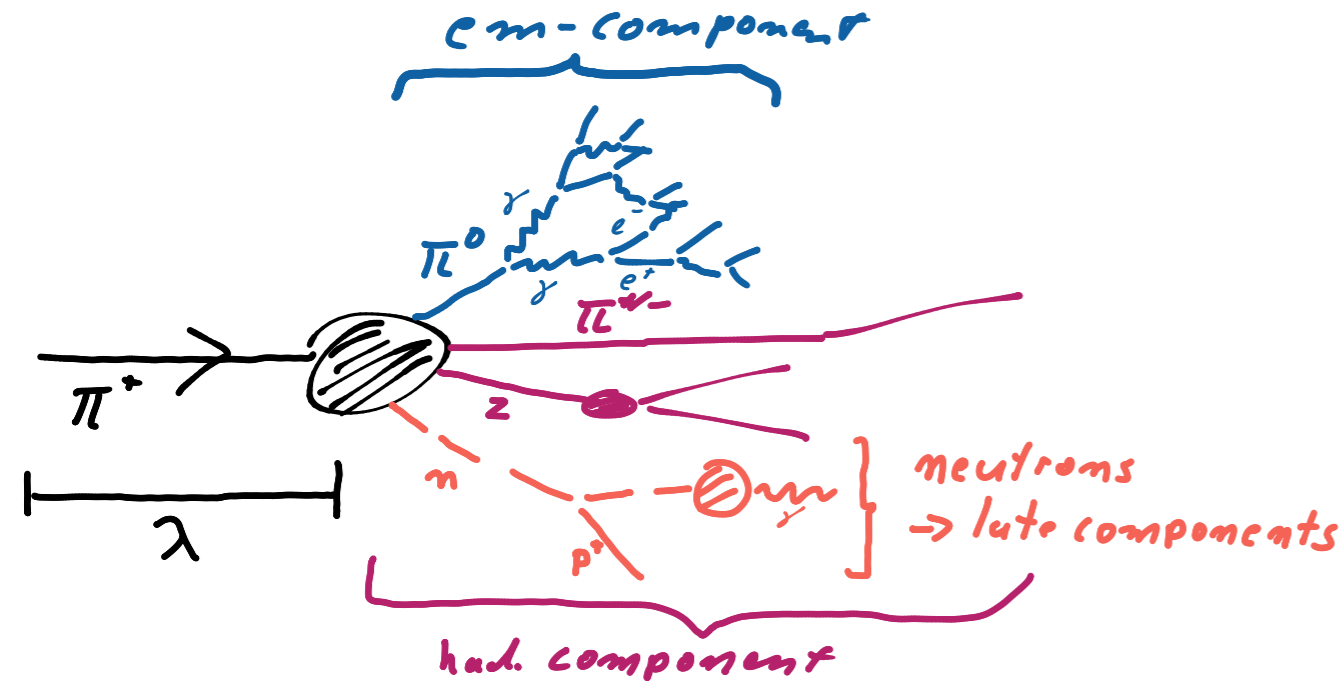 em-component
γ
π⁰
e⁻
γ
e⁺
π⁺/⁻
π⁺
z
n
γ
neutrons
→ late components
λ
p⁺
had. component